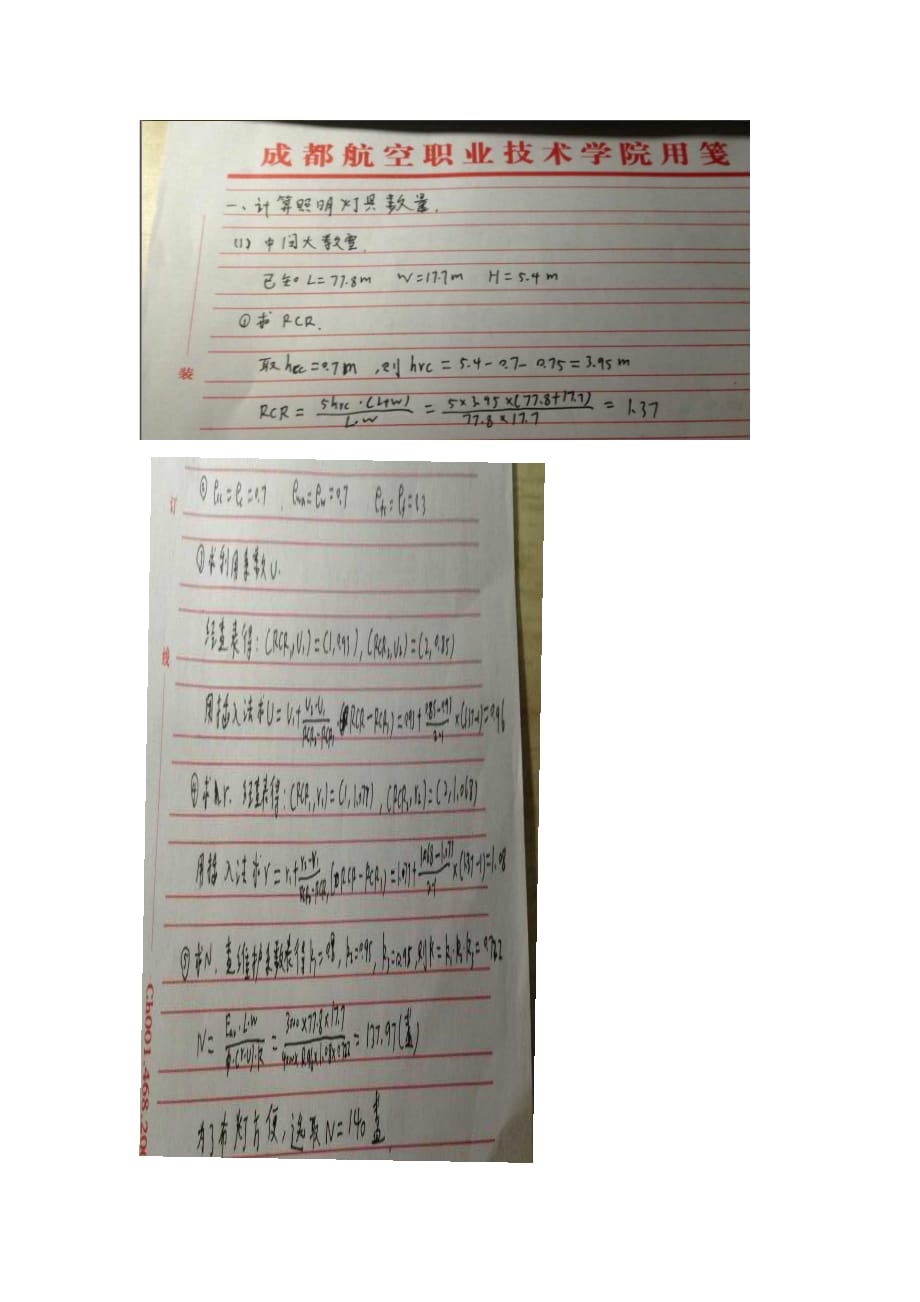 成都航空职业技术学院用笺
一、计算照明灯具数量.
(1) 中间大教室.
已知 L=77.8m W=17.7m H=5.4m
① 求 RCR.
取 hcc=0.7m ,则 hrc = 5.4-0.7-0.75=3.95m
装
RCR = 5hrc·(L+W)/L·W = 5×3.95×(77.8+17.7)/77.8×17.7 = 1.37
② ρcc=ρc=0.7 . ρwa=ρw=0.7 ρfc=ρf=0.3
订
③ 求利用系数U.
经查表得: (RCR1,U1)=(1,0.93), (RCR2,U2)=(2,0.85)
线
用插入法求U=U1+U2-U1/RCR2-RCR1 (RCR-RCR1)= ×(1.37-1)=0.96
④ 求r. 经查表得: (RCR1,r1)=(1,1.077), (RCR2,r2)=(2,1.068)
用插入法求r=r1+r2-r1/RCR2-RCR1 (RCR-RCR1)=1.077+1.068-1.077/2-1×(1.37-1)=1.08
⑤ 求N. 查维护系数表得k1=0.8, k2=0.95, k3=0.95,则K=k1·k2·k3=0.722
N= Eav·L·W/Φ·(r·U)·K = 3000×77.8×17.7/ ×0.96×1.08×0.722 = 137.97(盏)
为了布灯方便,选取N=140盏.
Ch001.468.200